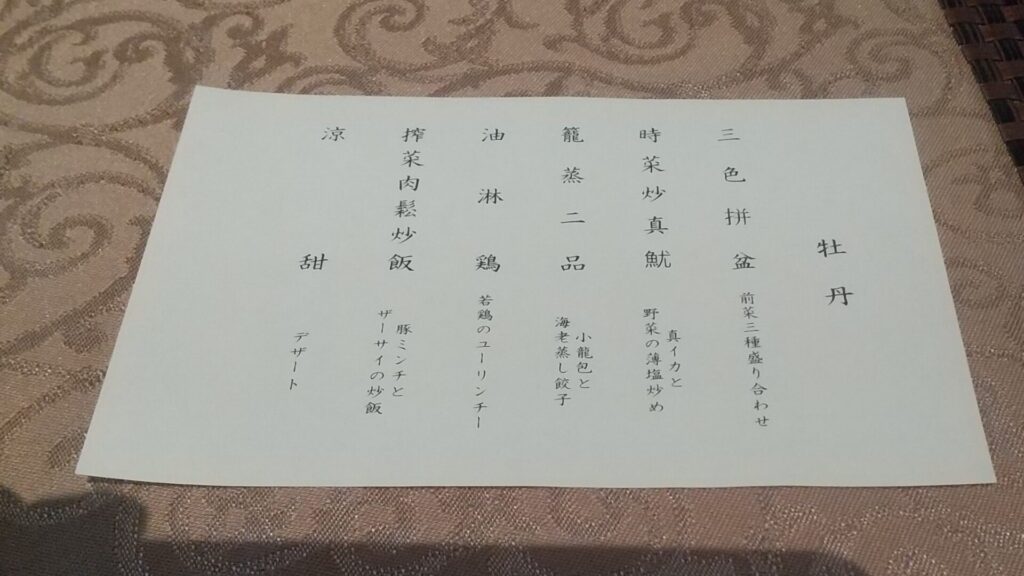 牡丹
三色拼盆
前菜三種盛り合わせ
時菜炒真魷
真イカと
野菜の薄塩炒め
籠蒸二品
小龍包と
海老蒸し餃子
油淋鶏
若鶏のユーリンチー
搾菜肉鬆炒飯
豚ミンチと
ザーサイの炒飯
涼甜
デザート